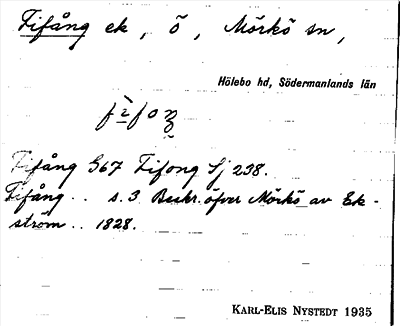 Fifång ek, ö, Mörkö sn,
Hölebo hd, Södermanlands län
fifoŋ
Fifång G67 Fifong Sj 238.
Fifång.. s. 3. Beskr. öfver Mörkö av Ek-
ström.. 1828.
KARL-ELIS NYSTEDT 1935